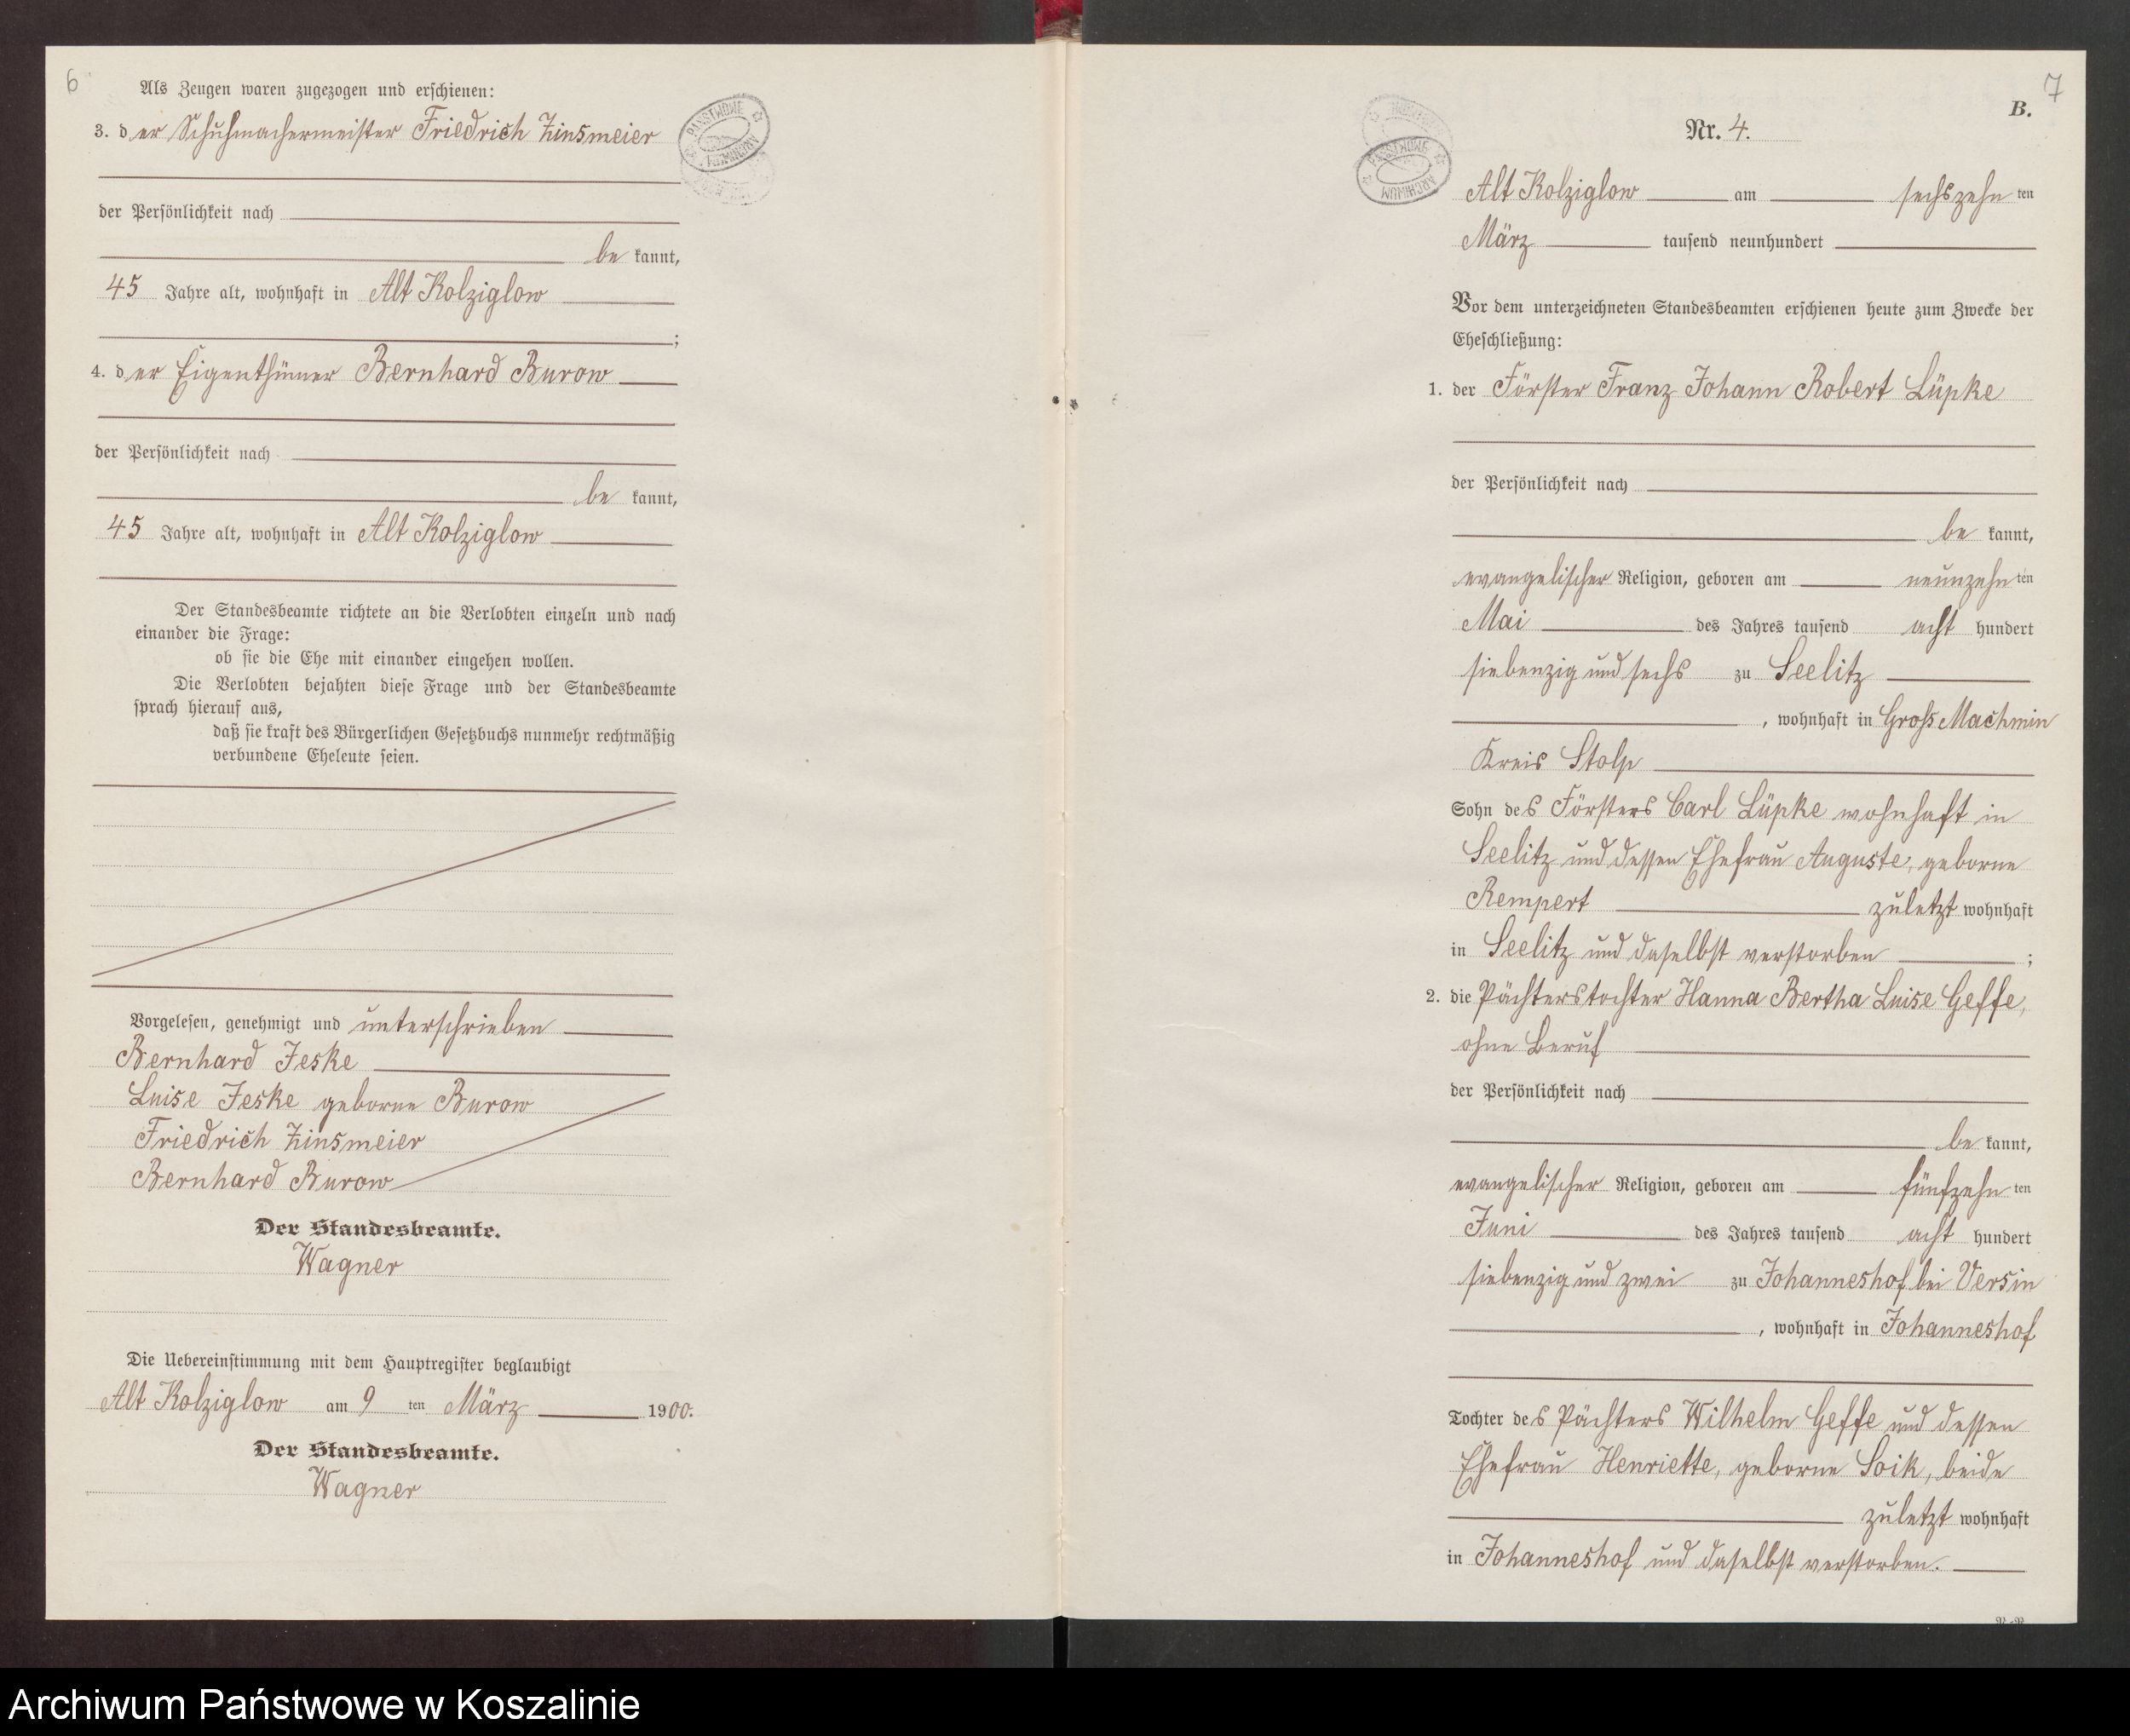 6
Als Zeugen waren zugezogen und erschienen:
3. der Schuhmachermeister Friedrich Zinsmeier
der Persönlichkeit nach
be kannt,
45 Jahre alt, wohnhaft in Alt Kolziglow
;
4. der Eigenthümer Bernhard Burow
der Persönlichkeit nach
be kannt,
45 Jahre alt, wohnhaft in Alt Kolziglow
Der Standesbeamte richtete an die Verlobten einzeln und nach
einander die Frage:
ob sie die Ehe mit einander eingehen wollen.
Die Verlobten bejahten diese Frage und der Standesbeamte
sprach hierauf aus,
daß sie kraft des Bürgerlichen Gesetzbuchs nunmehr rechtmäßig
verbundene Eheleute seien.
Vorgelesen, genehmigt und unterschrieben
Bernhard Jeske
Luise Jeske geborne Burow
Friedrich Zinsmeier
Bernhard Burow
Der Standesbeamte.
Wagner
Die Uebereinstimmung mit dem Hauptregister beglaubigt
Alt Kolziglow am 9 ten März 1900.
Der Standesbeamte.
Wagner
PAŃSTWOWE ARCHIWUM
7
B.
Nr. 4.
PAŃSTWOWE ARCHIWUM
Alt Kolziglow am sechszehn ten
März tausend neunhundert
Vor dem unterzeichneten Standesbeamten erschienen heute zum Zwecke der
Eheschließung:
1. der Förster Franz Johann Robert Lüpke
der Persönlichkeit nach
be kannt,
evangelischer Religion, geboren am neunzehn ten
Mai des Jahres tausend acht hundert
siebenzig und sechs zu Seelitz
, wohnhaft in Groß Machmin
Kreis Stolp
Sohn des Försters Carl Lüpke wohnhaft in
Seelitz und dessen Ehefrau Auguste, geborne
Rempert zuletzt wohnhaft
in Seelitz und daselbst verstorben ;
2. die Pächterstochter Hanna Bertha Luise Geffe,
ohne Beruf
der Persönlichkeit nach
be kannt,
evangelischer Religion, geboren am fünfzehn ten
Juni des Jahres tausend acht hundert
siebenzig und zwei zu Johanneshof bei Versin
, wohnhaft in Johanneshof
Tochter des Pächters Wilhelm Geffe und dessen
Ehefrau Henriette, geborne Soik, beide
zuletzt wohnhaft
in Johanneshof und daselbst verstorben.
Archiwum Państwowe w Koszalinie